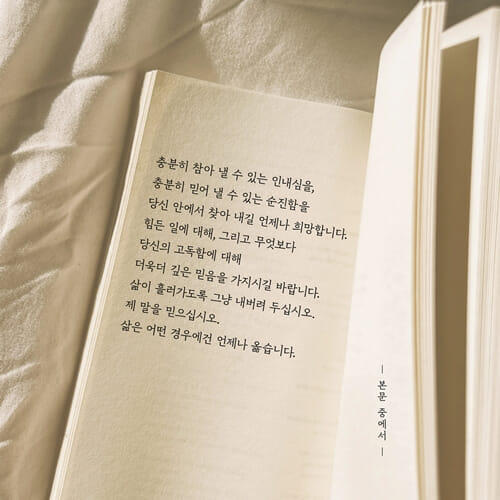 충분히 참아 낼 수 있는 인내심을,
충분히 믿어 낼 수 있는 순진함을
당신 안에서 찾아 내길 언제나 희망합니다.
힘든 일에 대해, 그리고 무엇보다
당신의 고독함에 대해
더욱더 깊은 믿음을 가지시길 바랍니다.
삶이 흘러가도록 그냥 내버려 두십시오.
제 말을 믿으십시오.
삶은 어떤 경우에건 언제나 옳습니다.
— 본문 중에서 —